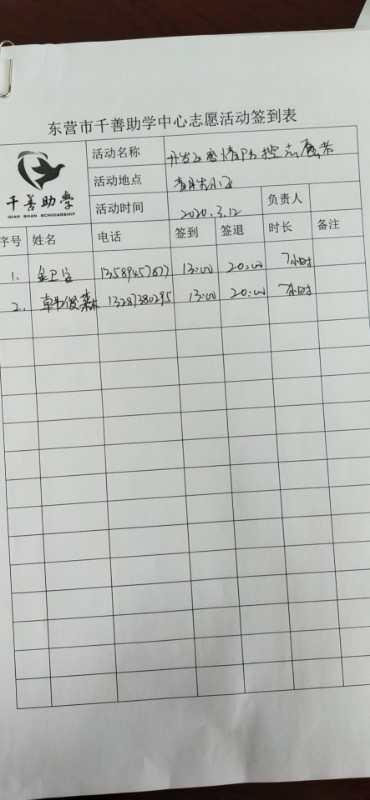 东营市千善助学中心志愿活动签到表
千善助学
QIAN SHAN SCHOLARSHIP
活动名称 开发区疫情防控志愿者
活动地点 小区
活动时间 2020.3.12 负责人
序号 姓名 电话 签到 签退 时长 备注
1. 13589457677 13:00 20:00 7小时
2. 13287380295 13:00 20:00 7小时